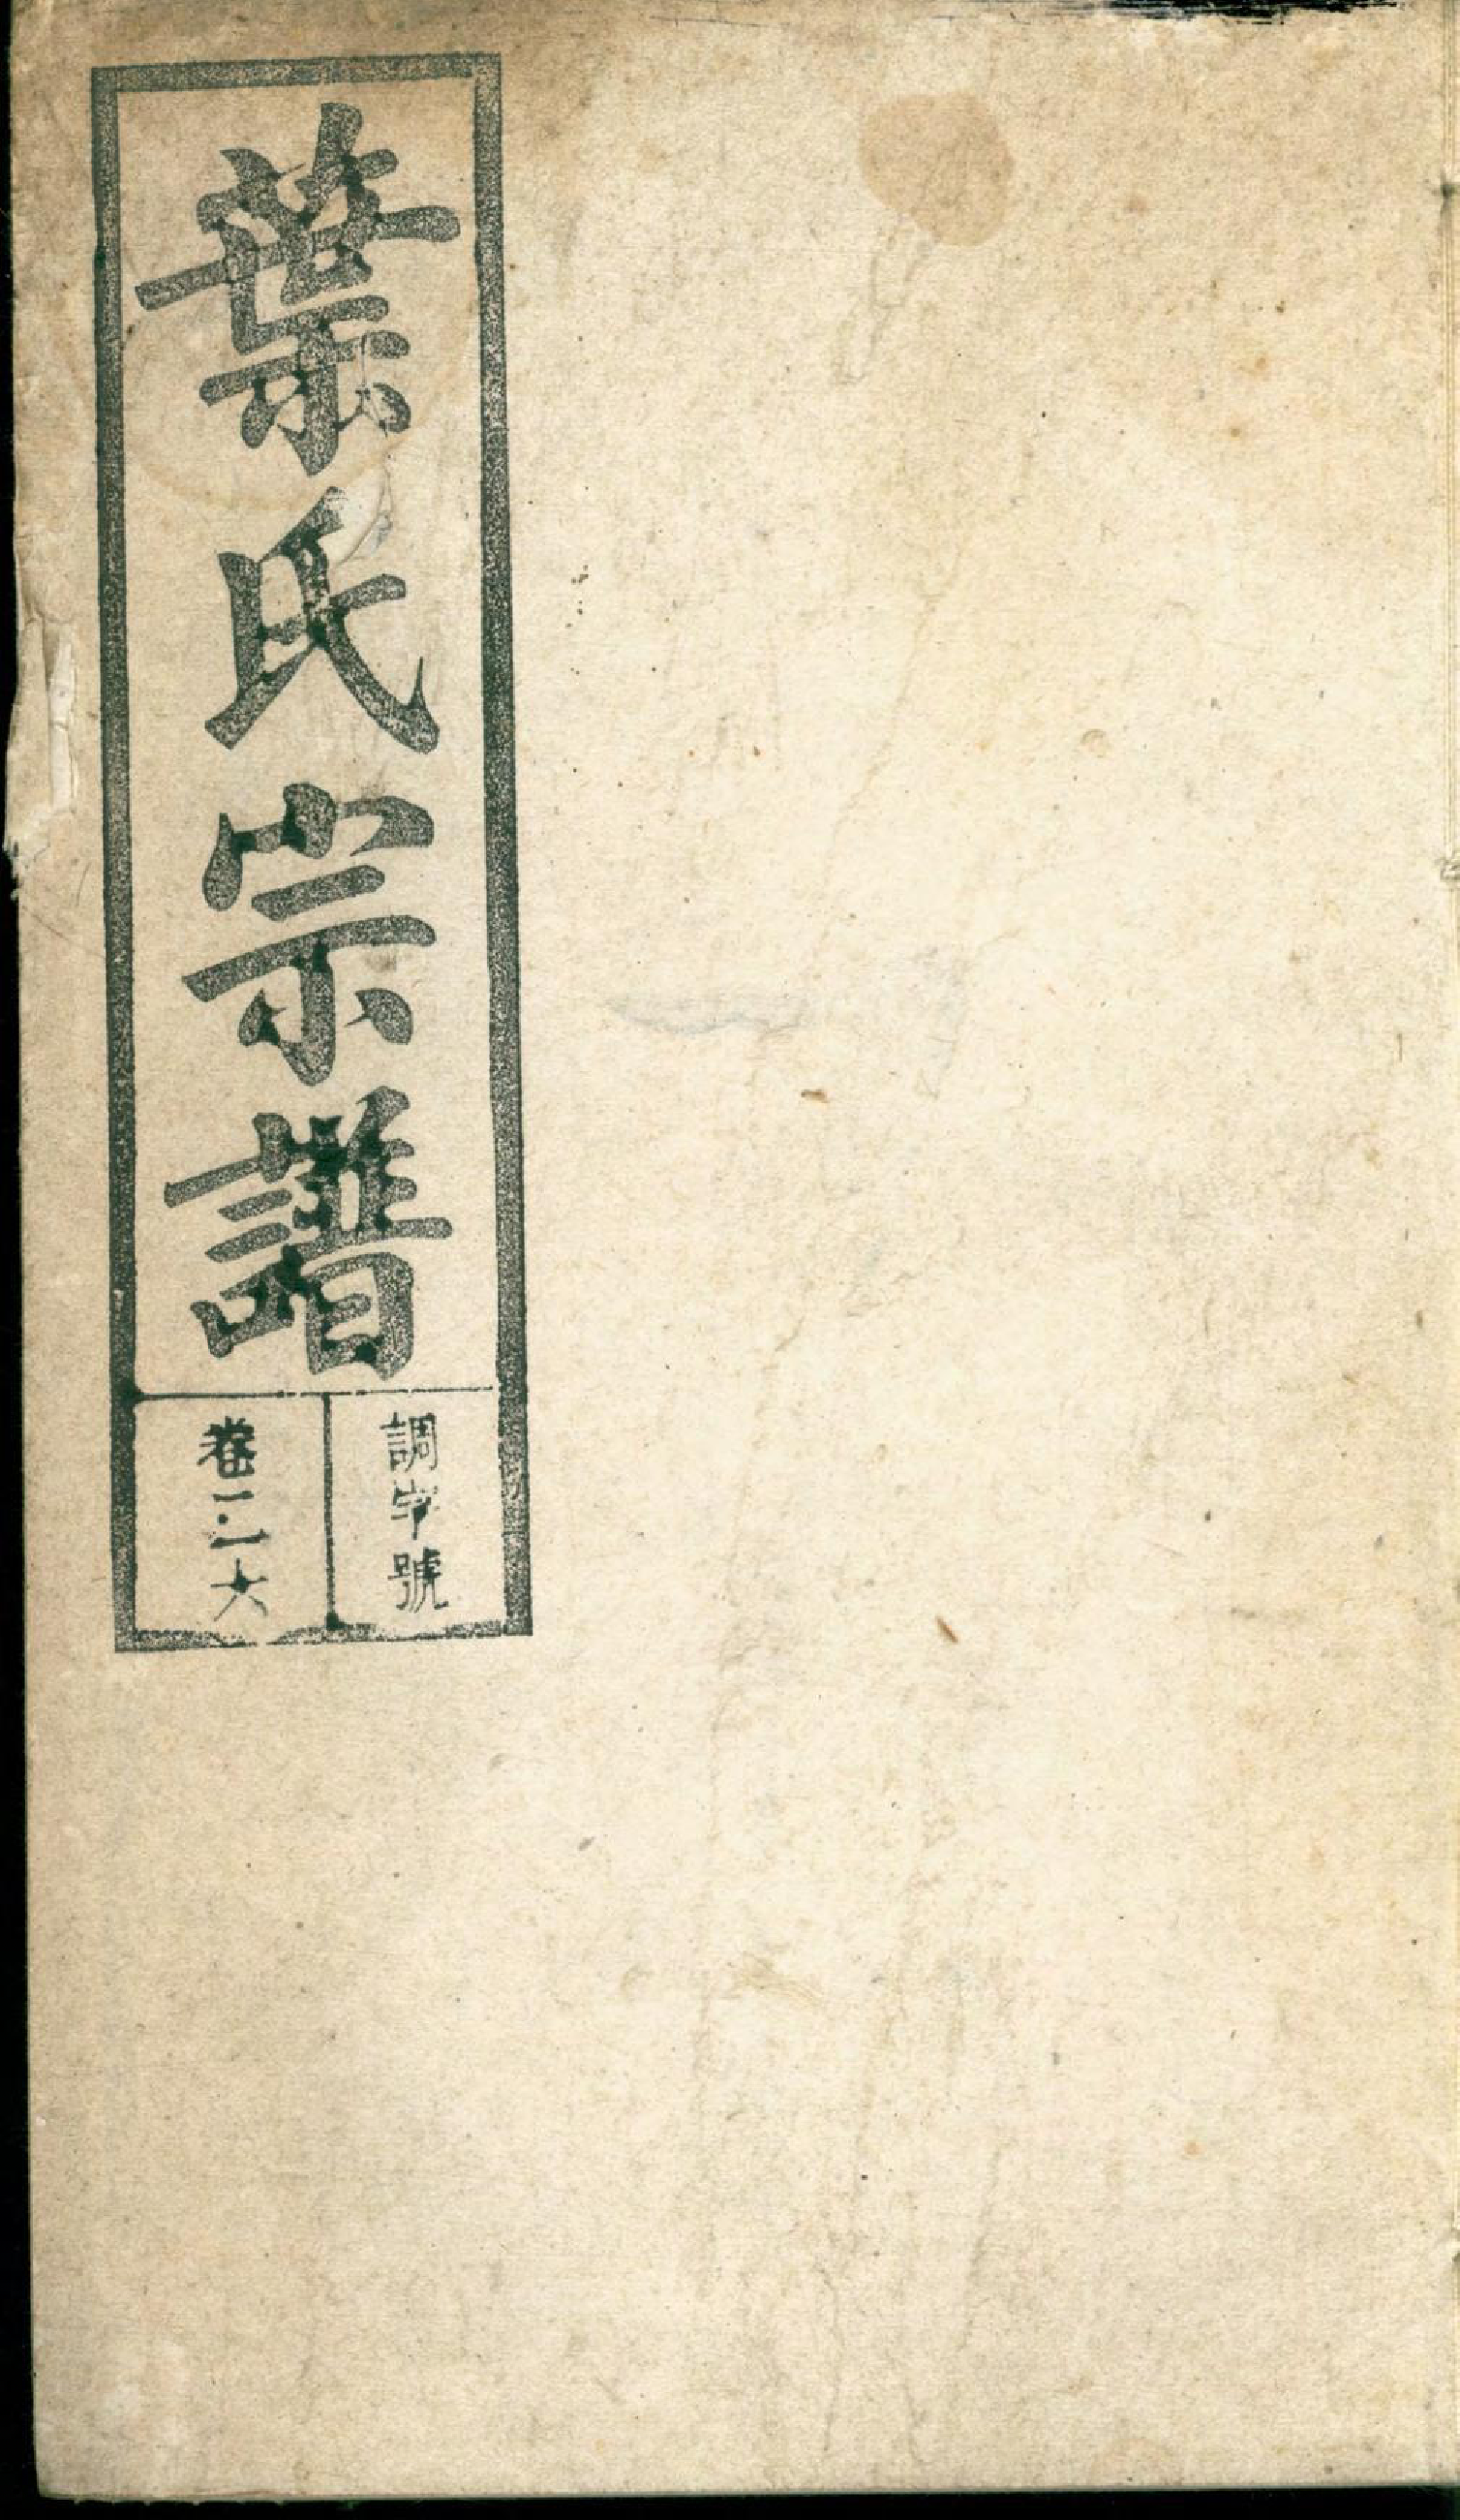 葉氏宗譜
調字號
卷二大